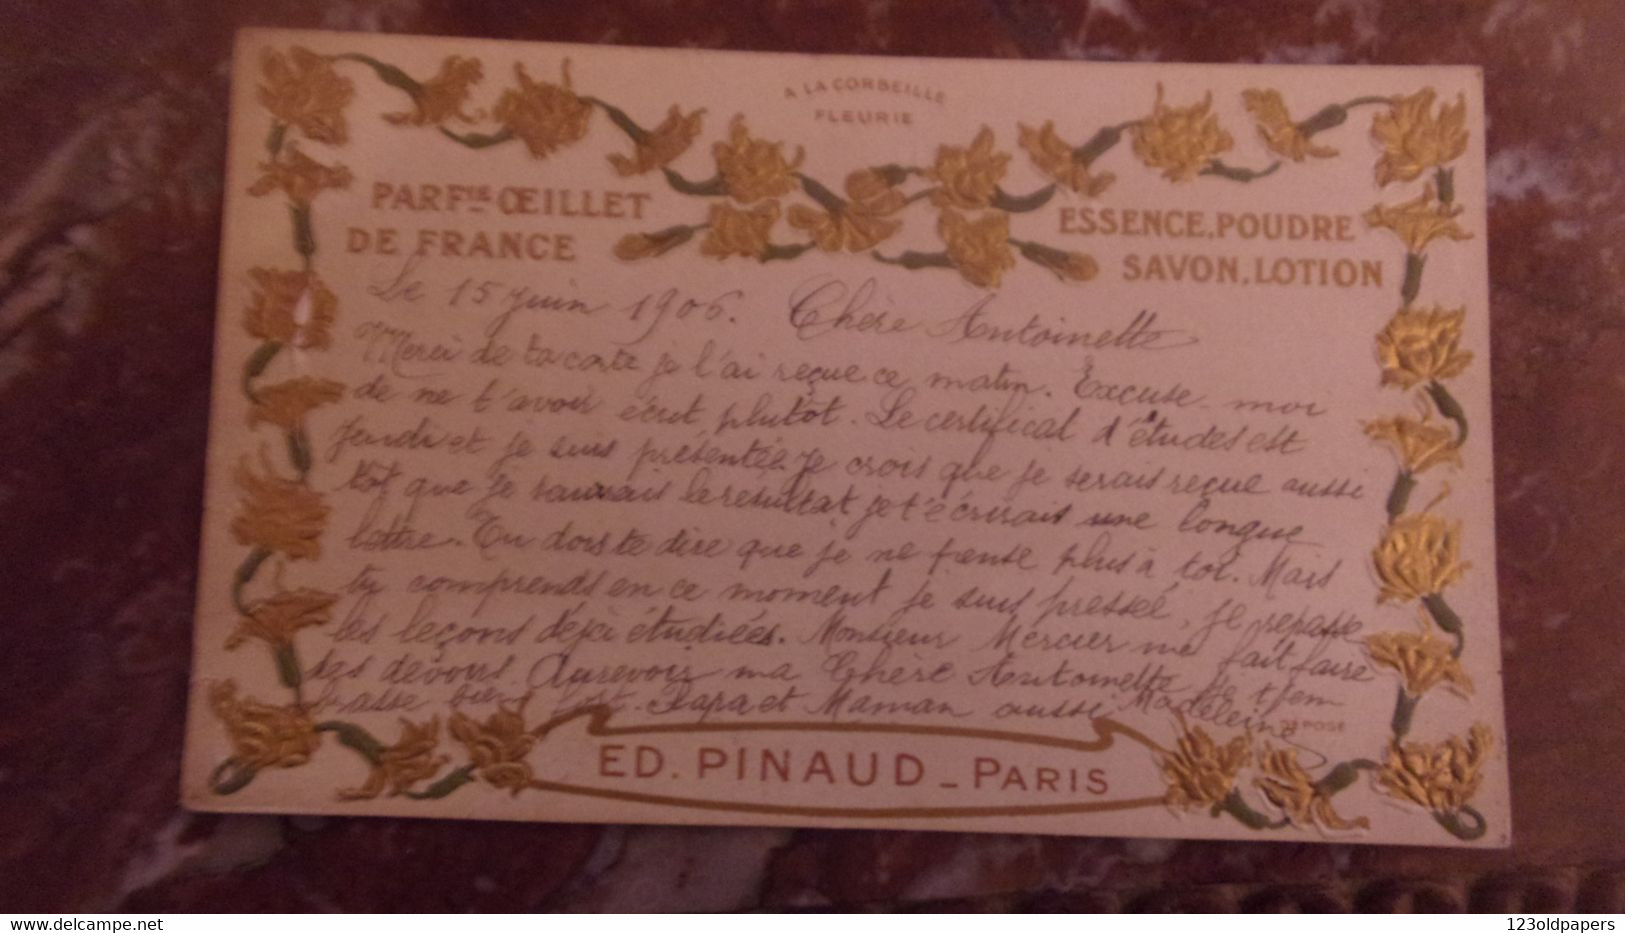 A LA CORBEILLE
FLEURIE
PARFIE ŒILLET
DE FRANCE
ESSENCE, POUDRE
SAVON, LOTION
Le 15 juin 1906. Chère Antoinette
Merci de ta carte je l'ai reçue ce matin. Excuse-moi
de ne t'avoir écrit plutôt. Le certificat d'études est
jeudi et je suis présentée. Je crois que je serais reçue aussi
tôt que je saurais le résultat je t'écrirais une longue
lettre. Tu dois te dire que je ne pense plus à toi. Mais
tu comprends en ce moment je suis pressée, je repasse
les leçons déjà étudiées. Monsieur Mercier me fait faire
des devoirs. Aurevoir ma Chère Antoinette je t'em
brasse bien fort. Papa et Maman aussi Madeleine
DÉPOSÉ
ED. PINAUD - PARIS
delcampe.net
123oldpapers